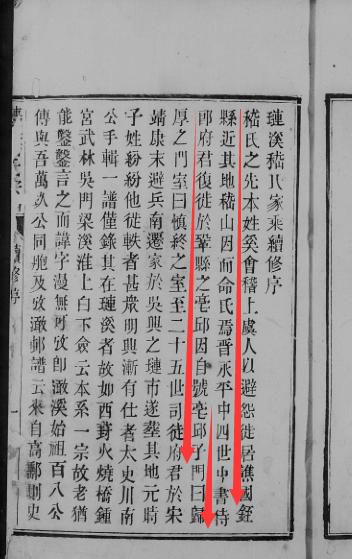 璉溪嵇氏家乘續修序
嵇氏之先本姓奚會稽上虞人以避怨徙居譙國銍
縣近其地嵇山因而命氏焉晋永平中四世中書侍
郎府君復徙於鞏縣之亳邱因自號亳邱子門曰歸
厚之門室曰慎終之室至二十五世司徒府君於宋
靖康末避兵南遷家於吳興之璉市遂塟其地元時
子姓紛紛他徙軼者甚衆明興漸有仕者太史川南
公手輯一譜僅錄其在璉溪者故如西封火燒橋鍾
宮武林吳門梁溪淮上白下僉云本系一宗故老猶
能鑿鑿言之而諱字漫無可攷卽澉溪始祖百八公
傳與吾萬公同胞及攷澉邨譜云來自高鄟刺史
續修序
一